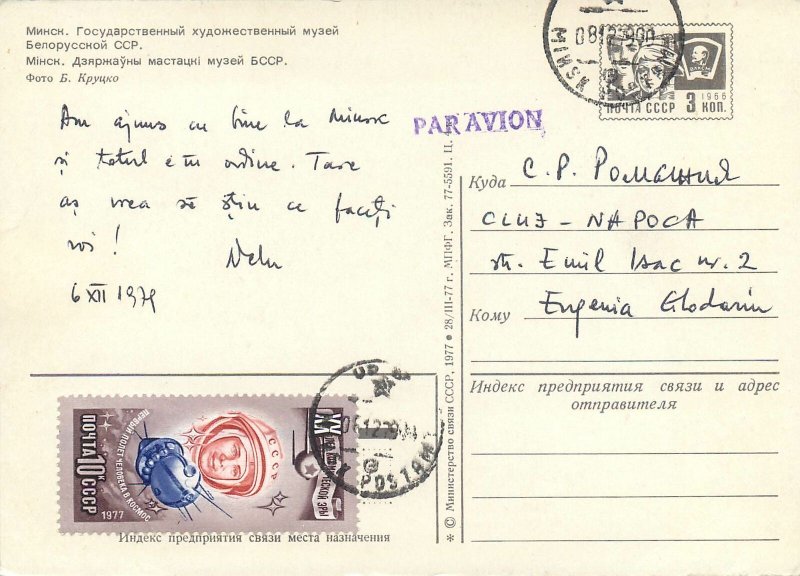 Минск. Государственный художественный музей
Белорусской ССР.
Мінск. Дзяржаўны мастацкі музей БССР.
Фото Б. Круцко
Am ajuns cu bine la Minsk
și totul e în ordine. Tare
aș vrea să știu ce faceți
voi!
Nelu
6 XII 1979
PAR AVION
MINSK
ПОЧТА СССР
1966
3 КОП.
ВЛКСМ
Куда С. Р. Романия
CLUJ-NAPOCA
str. Emil Isac nr. 2
Кому Eugenia Glodariu
Индекс предприятия связи и адрес
отправителя
* © Министерство связи СССР, 1977 • 28/III-77 г. МПФГ. Зак. 77-5591. Ц.
ПОЧТА 10К СССР
ПЕРВЫЙ ПОЛЕТ ЧЕЛОВЕКА В КОСМОС
1977
СССР
XX ЛЕТ КОСМИЧЕСКОЙ ЭРЫ
Индекс предприятия связи места назначения